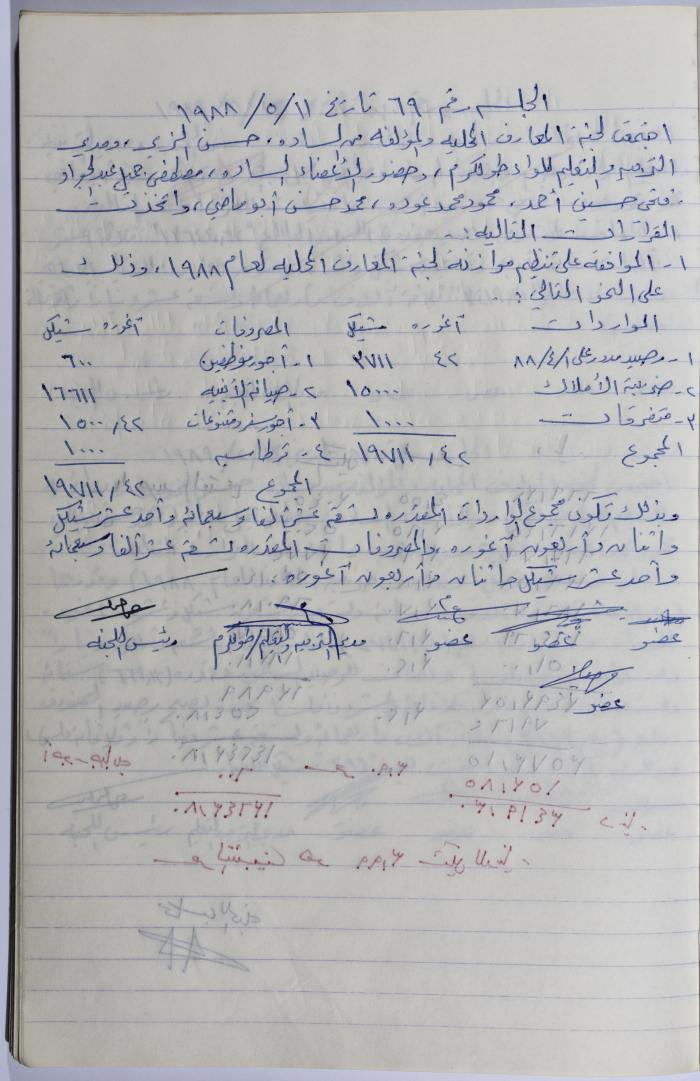 الجلسه رقم ٦٩ تاريخ ١١/٥/١٩٨٨
اجتمعت لجنة المعارف المحليه والمؤلفه من الساده، حسن الزي، ومدير
التربيه والتعليم للواء طولكرم، وحضور الأعضاء الساده، مصطفى جميل عبدالجواد
فتحي حسين أحمد، محمود محمد عوده، محمد حسن أبو ماضي، واتخذت
القرارات التاليه:
١- الموافقه على تنظيم موازنة لجنة المعارف المحليه لعام ١٩٨٨، وذلك
على النحو التالي:
الواردات آغوره شيكل المصروفات آغوره شيكل
١- رصيد مدور على ١/٤/٨٨ ٤٢ ٣٧١١ ١- أجور موظفين ٦٠٠
٢- ضريبة الأملاك ١٥٠٠٠ ٢- صيانة الأبنيه ١٦٦١١
٣- متفرقات ١٠٠٠ ٣- أجور سفر ومتنوعات ١٥٠٠/٤٢
المجموع ١٩٧١١/٤٢ ٤- قرطاسيه ١٠٠٠
المجموع ١٩٧١١/٤٢
وبذلك تكون مجموع الواردات المقدره تسعة عشر ألفا وسبعمائة وأحد عشر شيكل
واثنان وأربعون آغوره، والمصروفات المقدره تسعة عشر ألفا وسبعمائة
وأحد عشر شيكل واثنان وأربعون آغوره.
عضو عضو عضو مدير التربيه والتعليم/طولكرم رئيس اللجنه
عضو